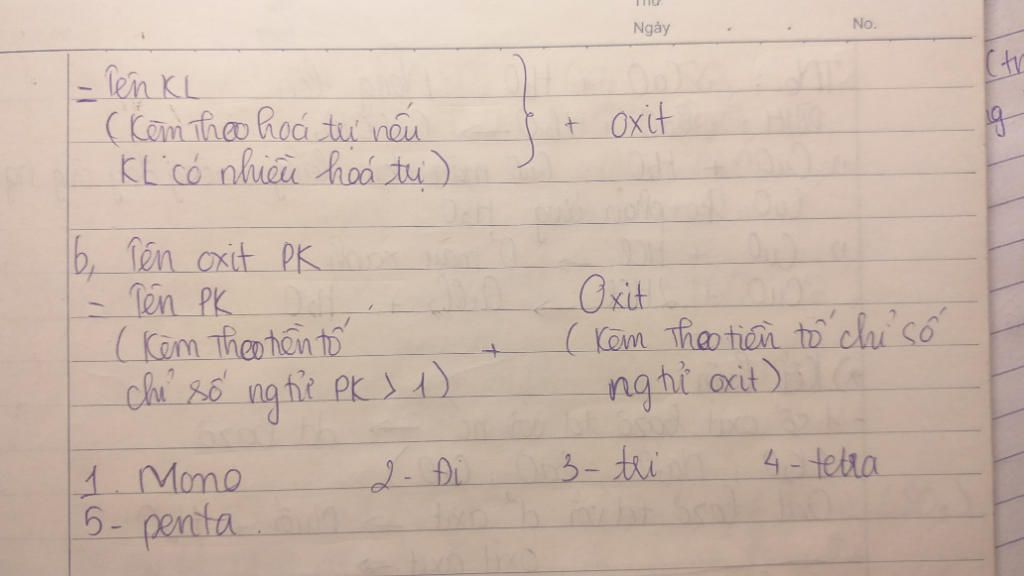 Thứ
Ngày . . No.
= Tên KL
(Kèm Theo hoá trị nếu
KL có nhiều hoá trị) } + oxit
b, Tên oxit PK
= Tên PK Oxit
(Kèm Theo tiền tố + (Kèm Theo tiền tố chỉ số
chỉ số ngtử PK > 1) ngtử oxit)
1. Mono 2 - Đi 3 - tri 4 - tetra
5 - penta.